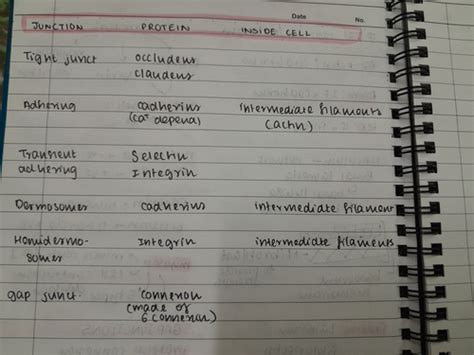 Date No.
JUNCTION PROTEIN INSIDE CELL
Tight junct occludens
claudens
Adhering cadherins intermediate filaments
(ca+ depend) (actin)
Transient Selectin
adhering Integrin
Dermosomes cadherins intermediate filament
Hemidermo- Integrin intermediate filaments
somes
gap junct. connexon
(made of
6 connexon)